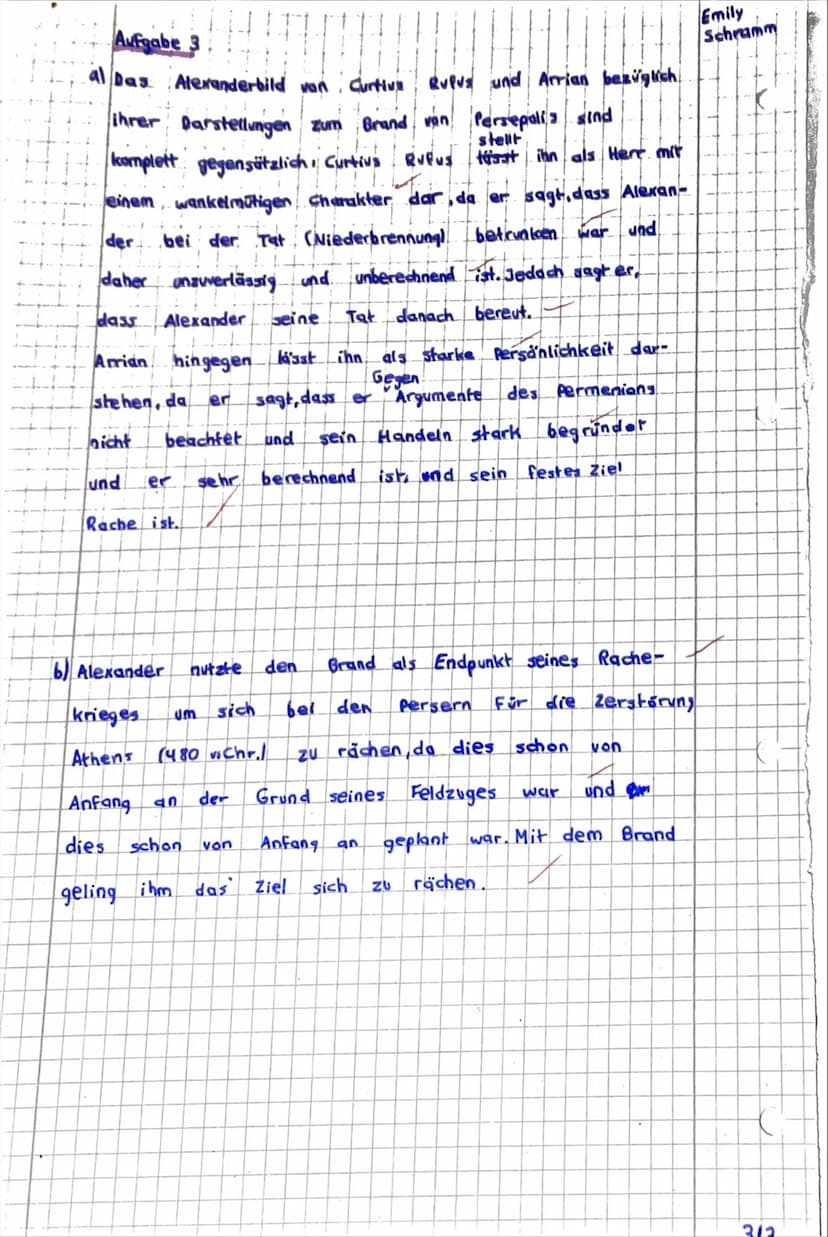 Emily
Schramm
Aufgabe 3
a) Das Alexanderbild von Curtius Rufus und Arrian bezüglich
ihrer Darstellungen zum Brand von Persepolis sind
komplett gegensätzlich. Curtius Rufus lässt stellt ihn als Herr mit
einem wankelmütigen Charakter dar, da er sagt, dass Alexan-
der bei der Tat (Niederbrennung) betrunken war und
daher unzuverlässig und unberechnend ist. Jedoch sagt er,
dass Alexander seine Tat danach bereut.
Arrian hingegen lässt ihn als starke Persönlichkeit dar-
stehen, da er sagt, dass er Gegen Argumente des Permenions
nicht beachtet und sein Handeln stark begründet
und er sehr berechnend ist, und sein festes Ziel
Rache ist.
b) Alexander nutzte den Brand als Endpunkt seines Rache-
krieges um sich bei den Persern für die Zerstörung
Athens (480 v.Chr.) zu rächen, da dies schon von
Anfang an der Grund seines Feldzuges war und
dies schon von Anfang an geplant war. Mit dem Brand
geling ihm das Ziel sich zu rächen.